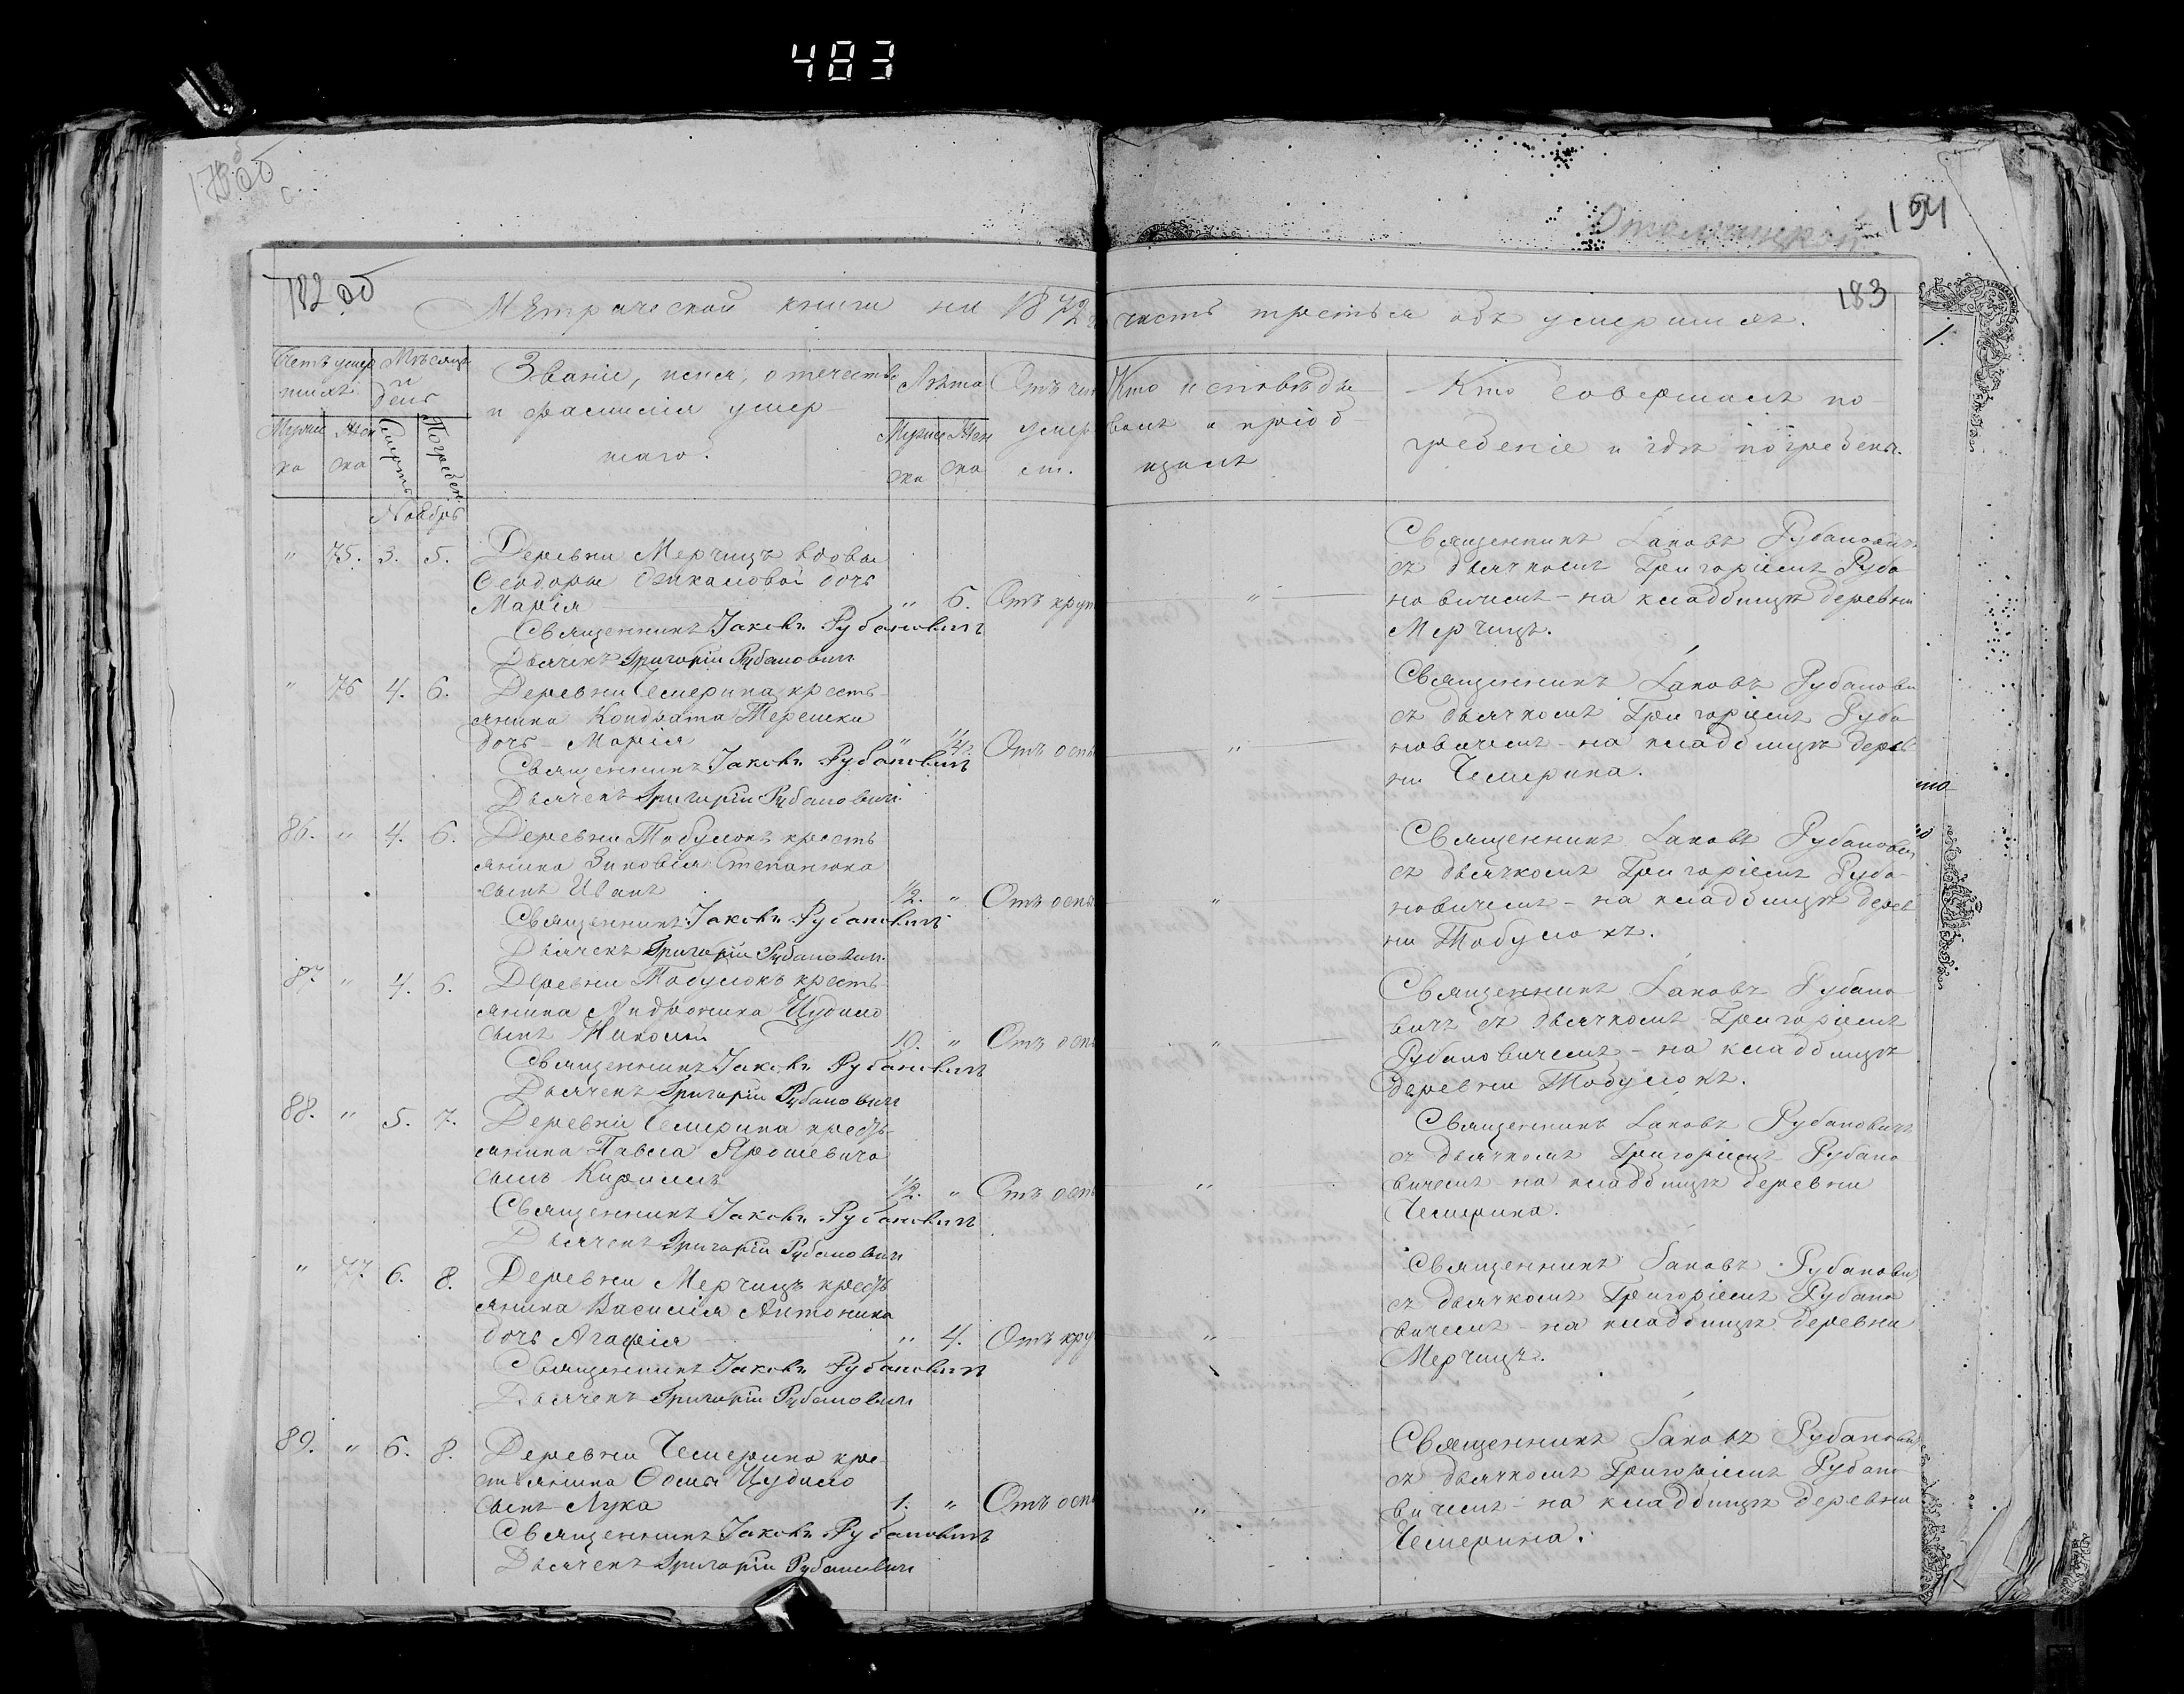 483
194
182 об
183
Метрической книги на 1872 г. часть третья объ умершихъ.
Счетъ умершихъ
Мѣсяцъ и день
Званіе, имя, отечество и фамилія умершаго.
Лѣта
Отъ чего умер
Кто исповѣдывалъ и пріобщалъ
Кто совершалъ погребеніе и гдѣ погребены.
Мужска
Женска
Смерть
Погребен.
Мужска
Женска
Ноябрь
" 75. 3. 5. Деревни Мерчицъ вдовы
Ѳеодоры дочь
Марія " 6. Отъ круп
Священникъ Іаковъ Рубановичъ
Дьячекъ Григорій Рубановичъ
Священникъ Іаковъ Рубановичъ
съ дьячкомъ Григоріемъ Руба
новичемъ - на кладбищѣ деревни
Мерчицъ.
" 76 4. 6. Деревни Чемерина кресть
янина Кондрата Терешки
дочь Марія " 1/2. Отъ оспы
Священникъ Іаковъ Рубановичъ
Дьячекъ Григорій Рубановичъ
Священникъ Іаковъ Рубанови
съ дьячкомъ Григоріемъ Руба
новичемъ - на кладбищѣ дерев
ни Чемерина.
86. " 4. 6. Деревни Табулокъ кресть
янина Зиновія Степанюка
сынъ Иванъ 1/2. " Отъ оспы
Священникъ Іаковъ Рубановичъ
Дьячекъ Григорій Рубановичъ
Священникъ Іаковъ Рубанови
съ дьячкомъ Григоріемъ Руба
новичемъ - на кладбищѣ дерев
ни Табулокъ.
87. " 4. 6. Деревни Табулокъ кресть
янина Андроника Цудило
сынъ Николай 10. " Отъ осп
Священникъ Іаковъ Рубановичъ
Дьячекъ Григорій Рубановичъ
Священникъ Іаковъ Рубано
вичъ съ дьячкомъ Григоріемъ
Рубановичемъ - на кладбищѣ
деревни Табулокъ.
88. " 5. 7. Деревни Чемерина кресть
янина Павла Ярошевича
сынъ Кириллъ 1/2. " Отъ осп
Священникъ Іаковъ Рубановичъ
Дьячекъ Григорій Рубановичъ
Священникъ Іаковъ Рубановичъ
съ дьячкомъ Григоріемъ Рубано
вичемъ - на кладбищѣ деревни
Чемерина.
" 77. 6. 8. Деревни Мерчицъ кресть
янина Василія Антоника
дочь Агафія " 4. Отъ кру
Священникъ Іаковъ Рубановичъ
Дьячекъ Григорій Рубановичъ
Священникъ Іаковъ Рубанови
съ дьячкомъ Григоріемъ Рубано
вичемъ - на кладбищѣ деревни
Мерчицъ.
89. " 6. 8. Деревни Чемерина кре
стьянина Ѳомы Цудило
сынъ Лука 1. " Отъ осп
Священникъ Іаковъ Рубановичъ
Дьячекъ Григорій Рубановичъ
Священникъ Іаковъ Рубанови
съ дьячкомъ Григоріемъ Рубано
вичемъ - на кладбищѣ деревни
Чемерина.